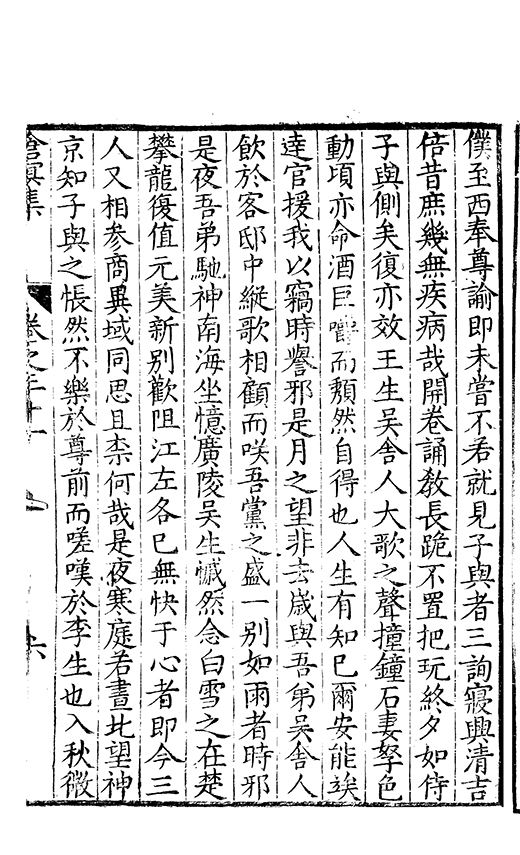 僕至西奉尊諭即未嘗不若就見子與者三詢寢興清吉
倍昔庶幾無疾病哉開卷誦教長跪不置把玩終夕如侍
子與側矣復亦效王生吴舍人大歌之聲撞鐘石妻孥色
動頃亦命酒巨嚼而頽然自得也人生有知已爾安能竢
達官援我以竊時譽邪是月之望非去歲與吾弟吴舍人
飲於客邸中縱歌相顧而咲吾黨之盛一别如雨者時邪
是夜吾弟馳神南海坐憶廣陵吴生慽然念白雪之在楚
攀龍復值元美新别歡阻江左各已無快于心者即今三
人又相參商異域同思且柰何哉是夜寒庭若晝北望神
京知子與之悵然不樂於尊前而嗟嘆於李生也入秋微
滄溟集 卷之二十一 六